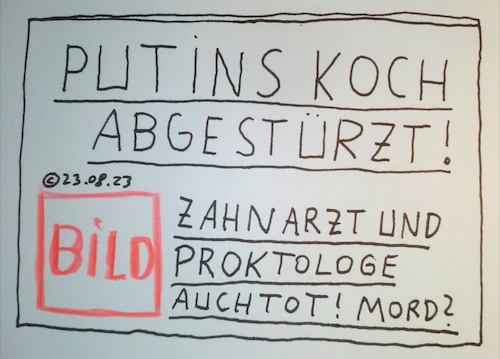 PUTINS KOCH
ABGESTÜRZT!
©23.08.23
BILD
ZAHNARZT UND
PROKTOLOGE
AUCHTOT! MORD?